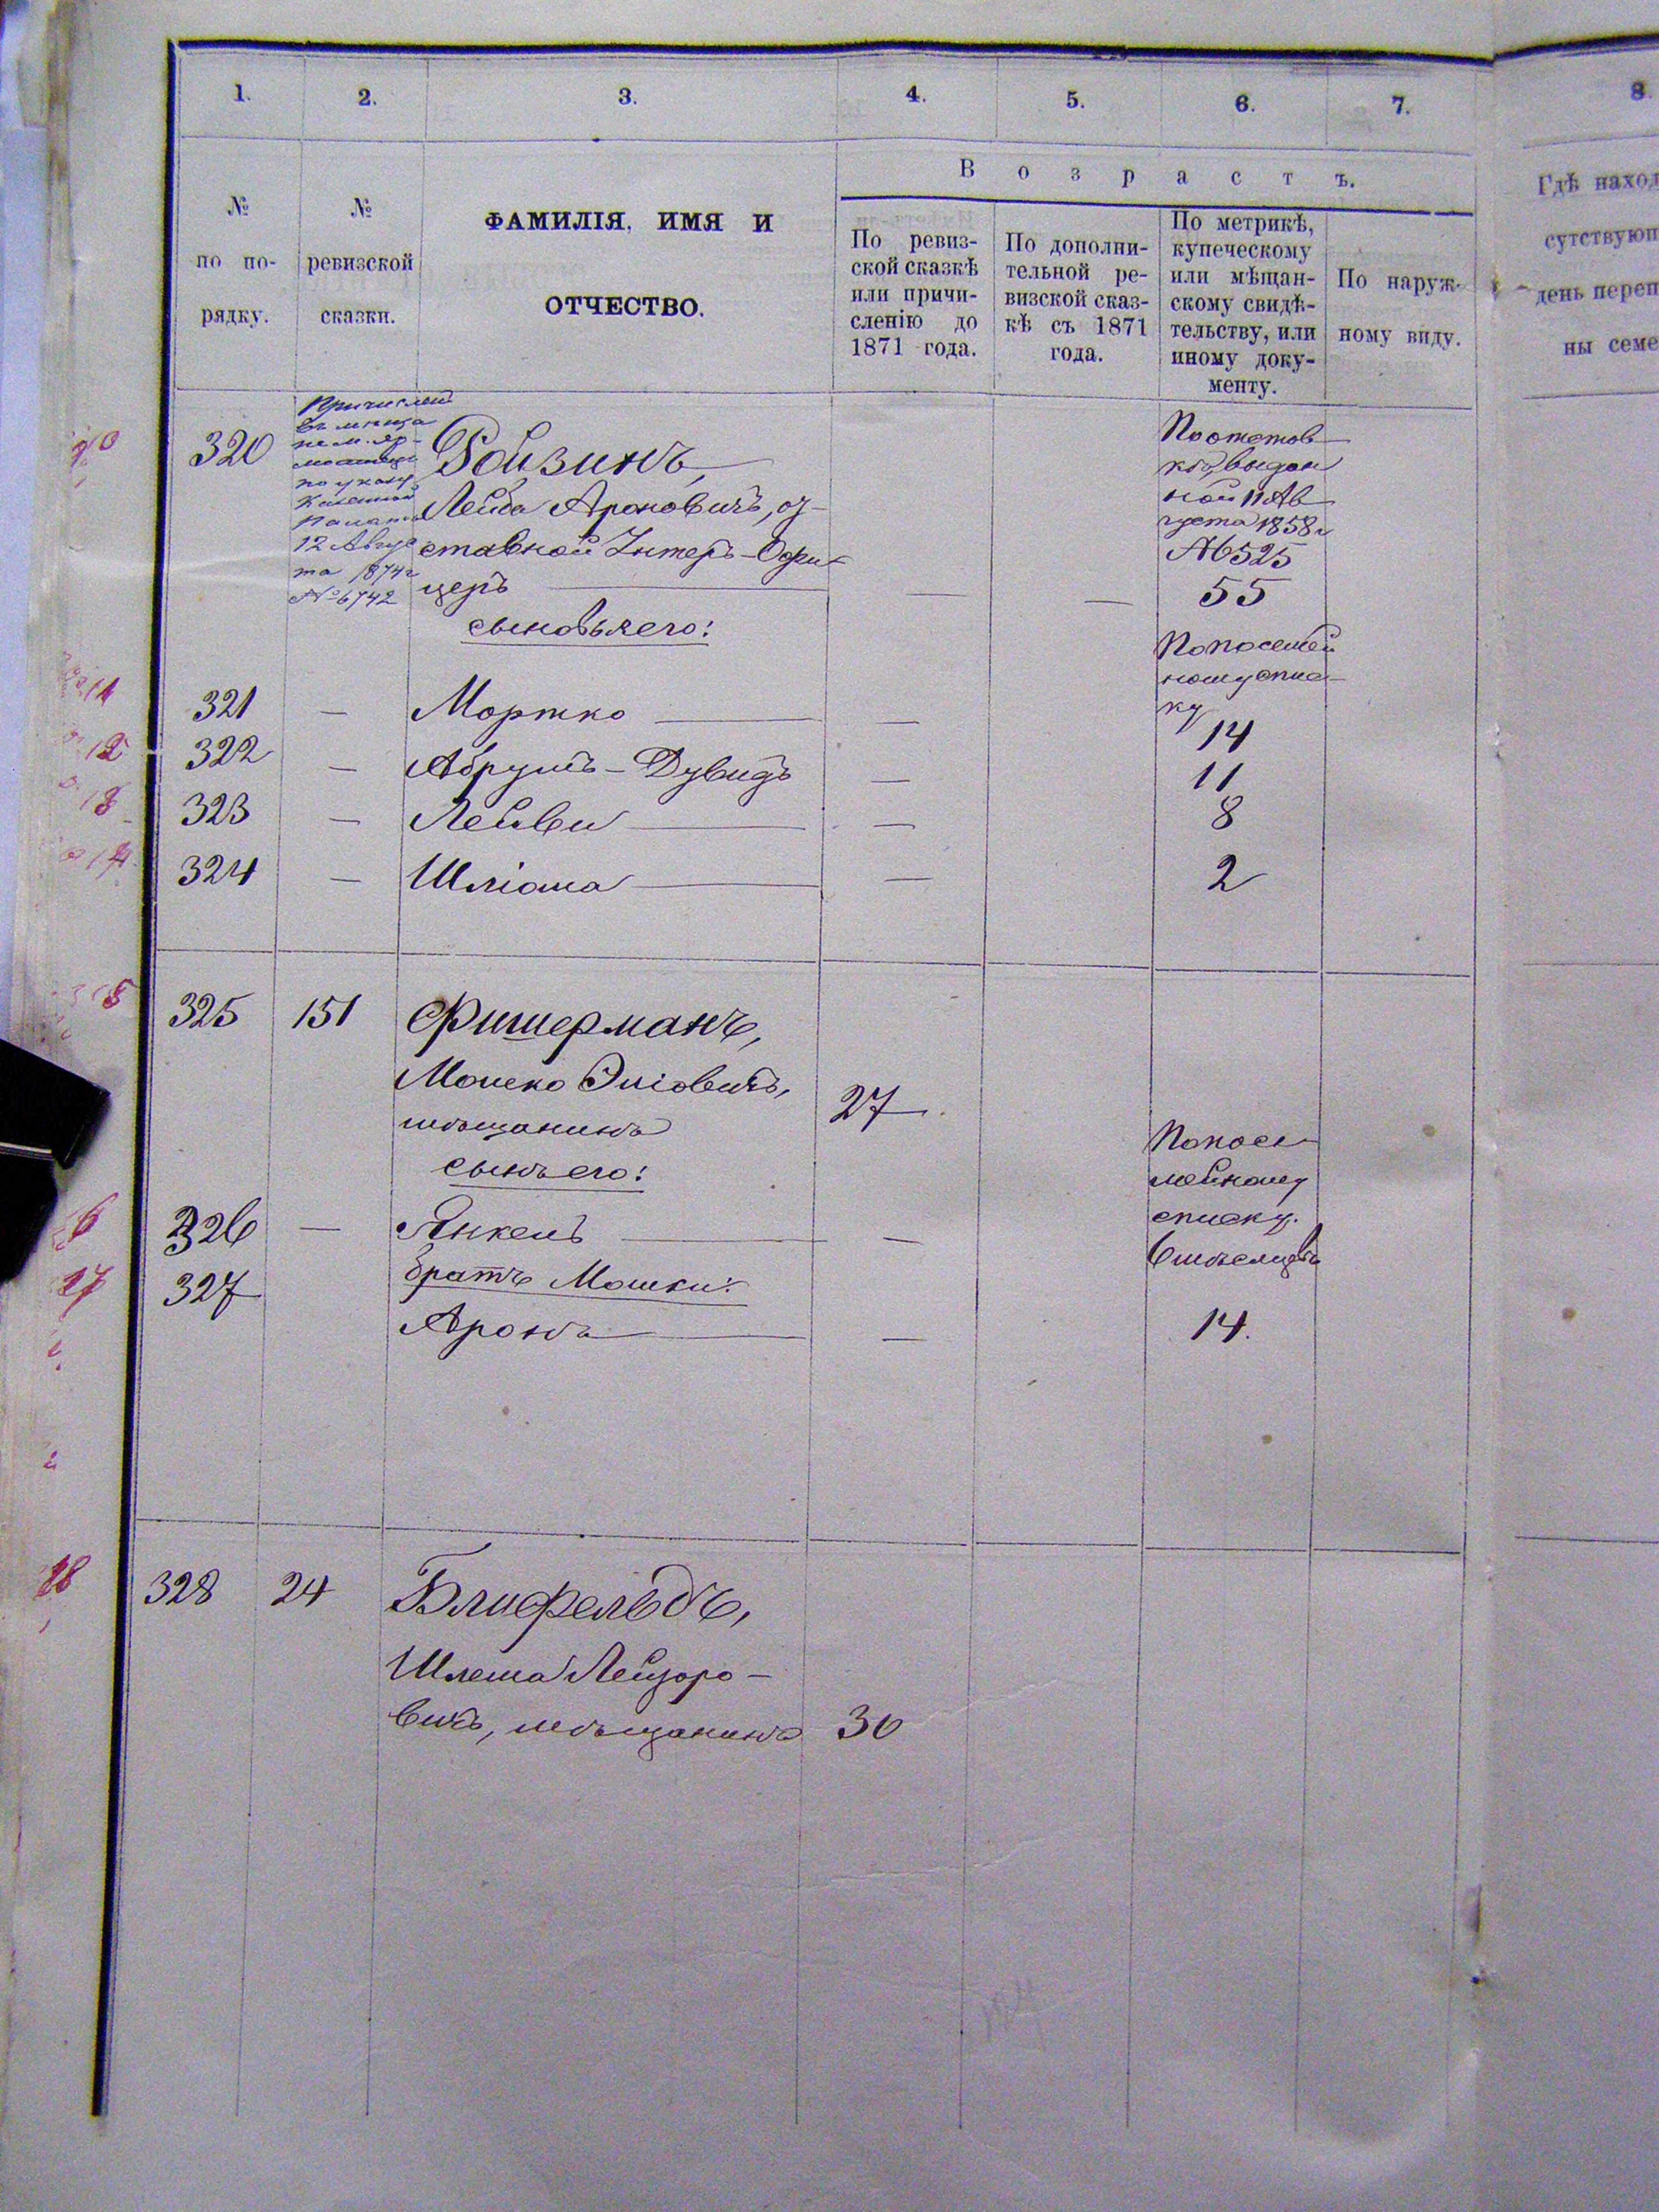 1.
2.
3.
4.
5.
6.
7.
8.
В о з р а с т ъ.
№ по по- рядку.
№ ревизской сказки.
ФАМИЛІЯ, ИМЯ И
ОТЧЕСТВО.
По ревиз-
ской сказкѣ
или причи-
сленію до
1871 года.
По дополни-
тельной ре-
визской сказ-
кѣ съ 1871
года.
По метрикѣ,
купеческому
или мѣщан-
скому свидѣ-
тельству, или
иному доку-
менту.
По наруж-
ному виду.
Гдѣ наход
сутствующ
день переп
ны семе
320
Причислен
по указу
Казенной
Палаты
12 Авгус
та 1874 г
№ 6742
Ройзинъ,
Лейба Ароновичъ, от-
ставной Унтеръ-Офи-
церъ —
—
—
По отстав-
кѣ, выдан
ной 11 Ав
густа 1858 г
№ 525
55
сыновья его:
По посемей
ному спис-
ку
321 — Мортко — — 14
322 — Абрумъ-Дувидъ — 11
323 — Лейви — — 8
324 — Шліома — — 2
325 151 Фишерманъ,
Мошко Эліовичъ, 27
мѣщанинъ
сынъ его:
По посе-
мейному
списку.
326 — Янкель — — 6 мѣсяцевъ
327 братъ Мошки:
Аронъ — — 14.
328 24 Блифельдъ,
Шлема Лейзоро-
вичъ, мѣщанинъ 30